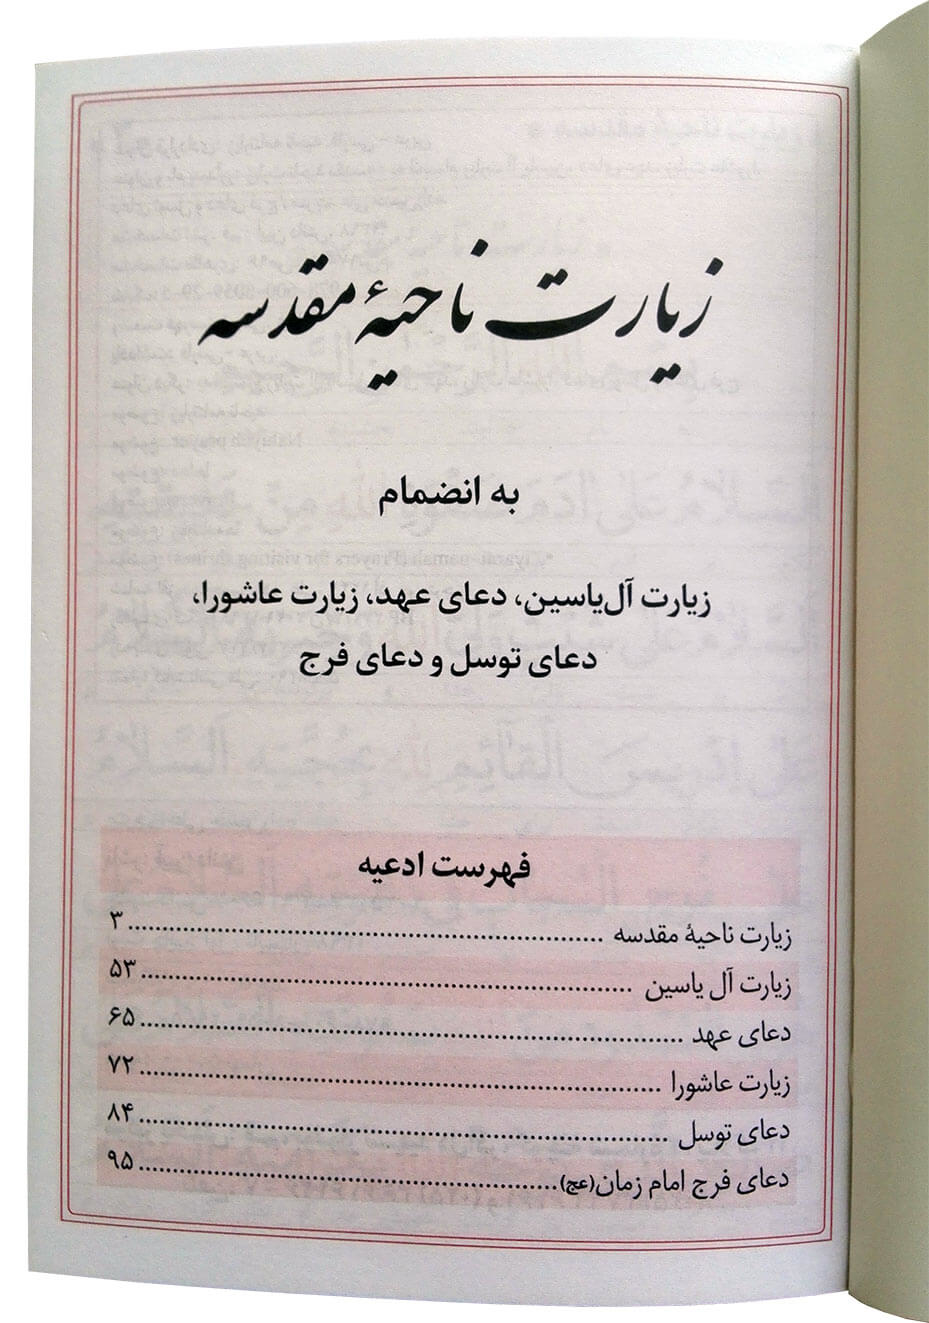 زیارت ناحیهٔ مقدسه
به انضمام
زیارت آل‌یاسین، دعای عهد، زیارت عاشورا،
دعای توسل و دعای فرج
فهرست ادعیه
زیارت ناحیهٔ مقدسه ........................ ۳
زیارت آل یاسین ........................ ۵۳
دعای عهد ........................ ۶۵
زیارت عاشورا ........................ ۷۲
دعای توسل ........................ ۸۴
دعای فرج امام زمان(عج) ........................ ۹۵